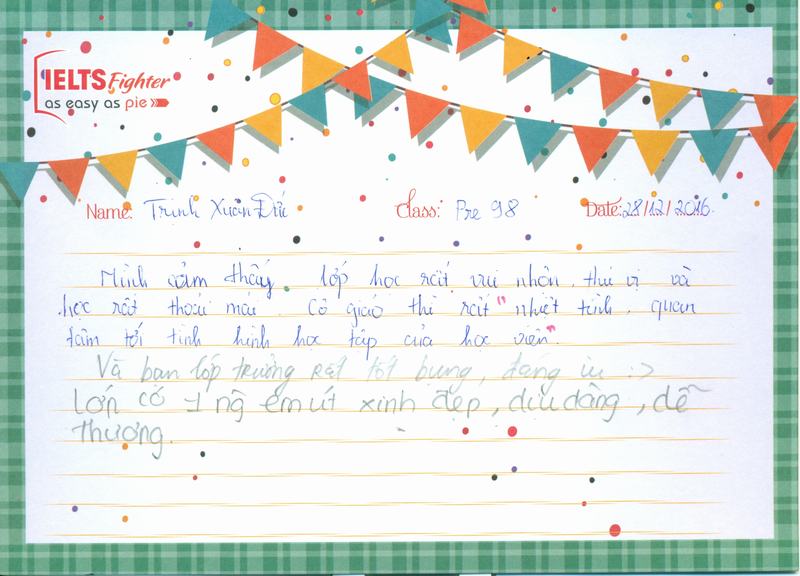 IELTS Fighter
as easy as pie
Name: Trịnh Xuân Đức Class: Pre 98 Date: 28/12/2016
Mình cảm thấy lớp học rất vui nhộn, thú vị và
học rất thoải mái. Cô giáo thì rất "nhiệt tình, quan
tâm tới tình hình học tập của học viên".
Và bạn lớp trưởng rất tốt bụng, đáng iu :>
Lớn có 1 ng em út xinh đẹp, dịu dàng, dễ
thương.